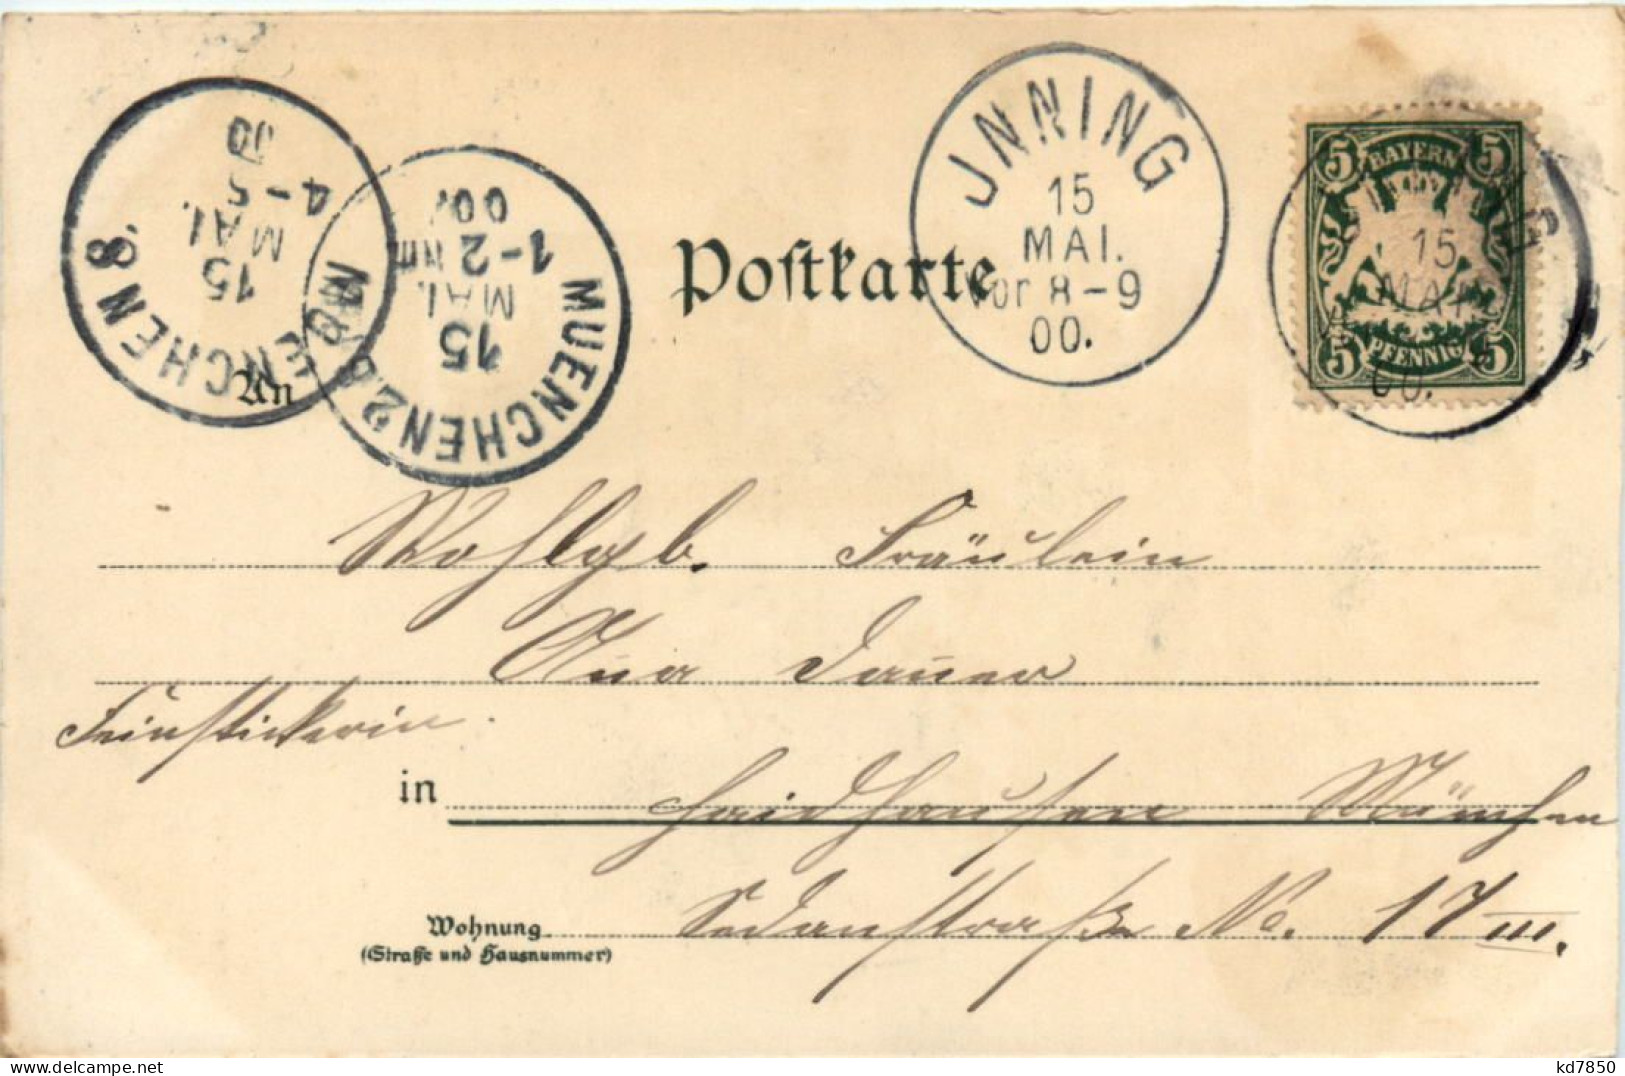 MUENCHEN 8.
15
MAI.
4-5
00
MUENCHEN 2.B.P.
15
MAI.
1-2 NM
00.
JNNING
15
MAI.
Vor 8-9
00.
5 BAYERN 5
15
MAI
5 PFENNIG 5
00.
Postkarte
An
Wohlgb. Fräulein
Anna Dauer
Feinstickerin.
in Haidhausen München
Wohnung Sedanstraße No. 17 III.
(Straße und Hausnummer)
kd7850